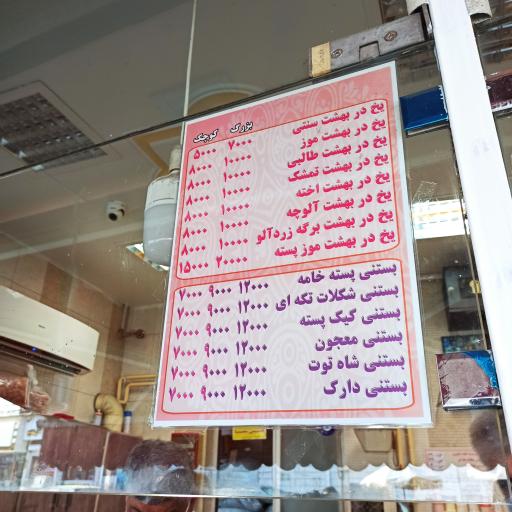 بزرگ کوچک
یخ در بهشت سنتی ۷۰۰۰ ۵۰۰۰
یخ در بهشت موز ۱۰۰۰۰ ۸۰۰۰
یخ در بهشت طالبی ۱۰۰۰۰ ۸۰۰۰
یخ در بهشت تمشک ۱۰۰۰۰ ۸۰۰۰
یخ در بهشت اخته ۱۰۰۰۰ ۸۰۰۰
یخ در بهشت آلوچه ۱۰۰۰۰ ۸۰۰۰
یخ در بهشت برگه زردآلو ۱۰۰۰۰ ۸۰۰۰
یخ در بهشت موز پسته ۲۰۰۰۰ ۱۵۰۰۰
بستنی پسته خامه ۱۲۰۰۰ ۹۰۰۰ ۷۰۰۰
بستنی شکلات تکه ای ۱۲۰۰۰ ۹۰۰۰ ۷۰۰۰
بستنی کیک پسته ۱۲۰۰۰ ۹۰۰۰ ۷۰۰۰
بستنی معجون ۱۲۰۰۰ ۹۰۰۰ ۷۰۰۰
بستنی شاه توت ۱۲۰۰۰ ۹۰۰۰ ۷۰۰۰
بستنی دارک ۱۲۰۰۰ ۹۰۰۰ ۷۰۰۰